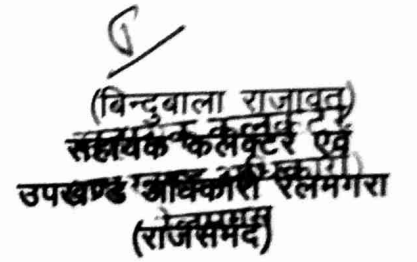 (बिन्दुबाला राजावत)
सहायक कलक्टर एवं
उपखण्ड अधिकारी रेलमगरा
(राजसमंद)